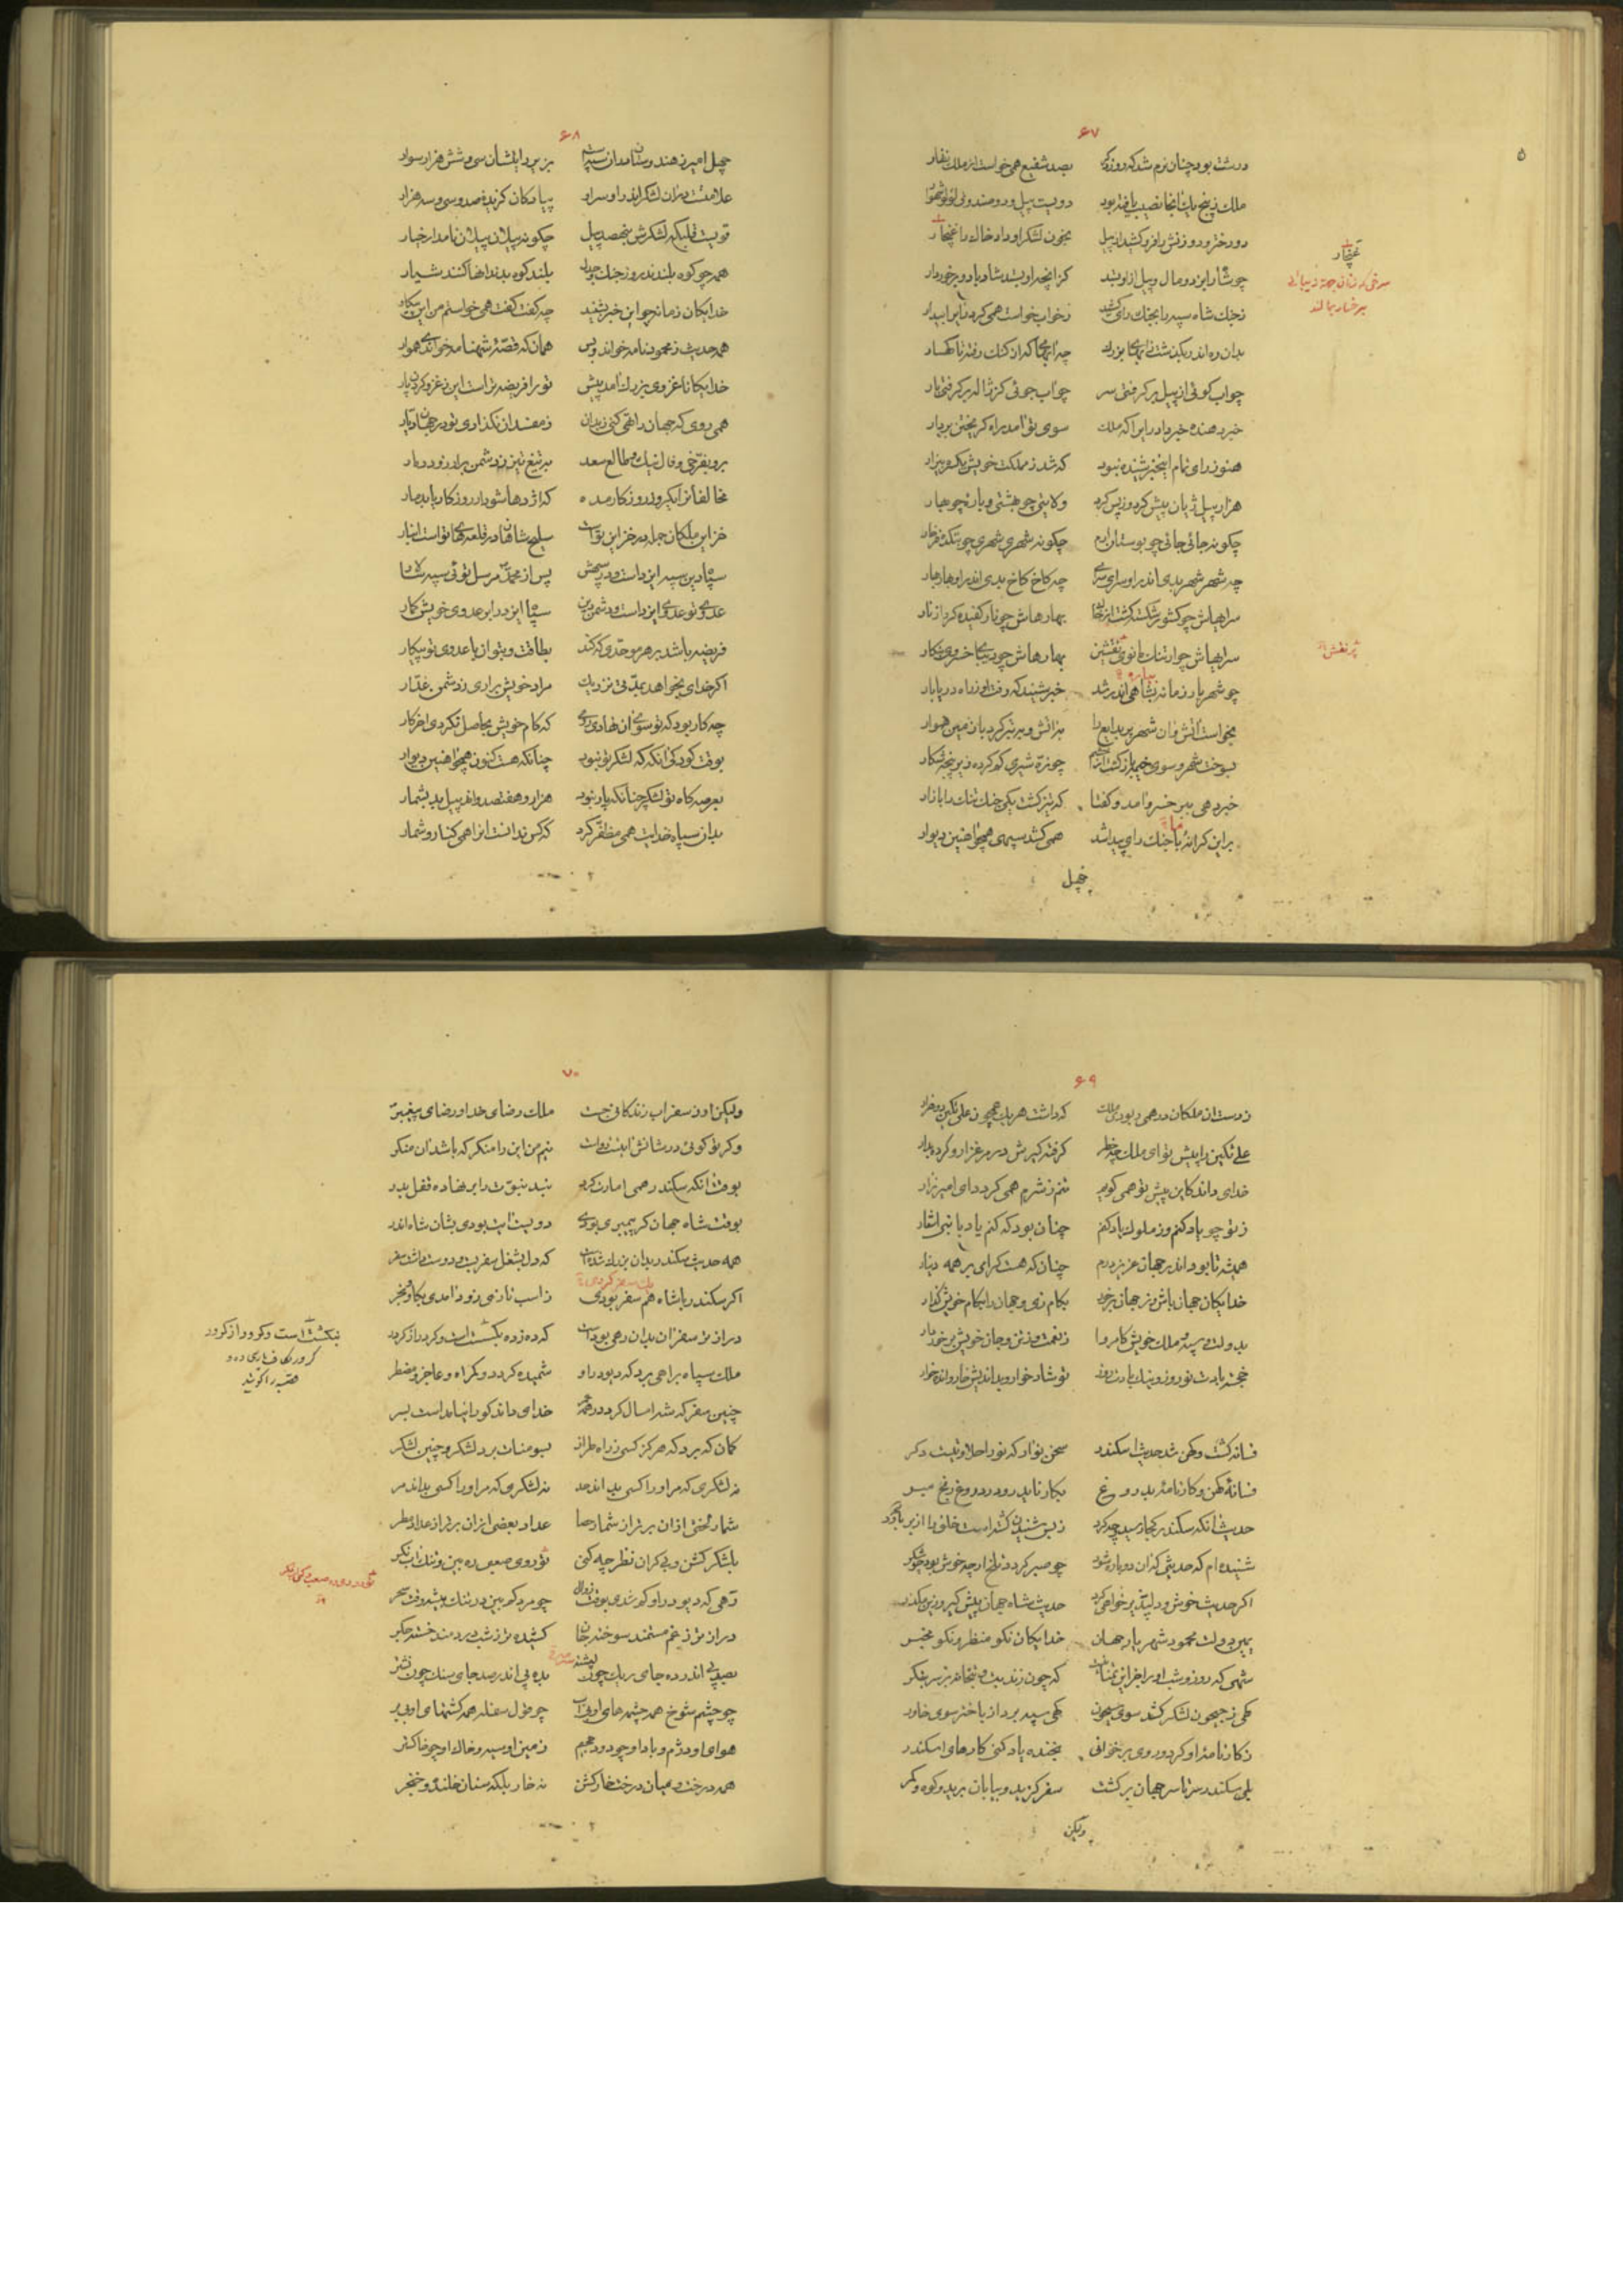 ۶۷
درشت بود چنان نرم شد که روز دگر بصد شفیع همی خواست از ملک زنهار
ملک ز پنج یک آنجا نصیب یافته بود دویست پیل و دو صندوق لؤلؤ شهوار
دو دختر و دو زنش را فرو کشید از پیل بخون لشکر او داد خاک را غنجار
غنجار
سرخی که زنان جهة زیبائی
بر رخسار مالند
چو شاه ازین دو مال و پیل ازو بستد کز آنچه زاو بستد شاد باد و برخوردار
ز جنگ شاه سپه را بجنگ رای کشید
بدان ره اندر بگذشت ز آبهای بزرگ
چو آب گوئی از پیل بر گرفتی سر چو آب جوئی کز ژاله بر گرفتی بار
خبر دهنده خبر داد رای را که ملک سوی تو آمد راه گریختن بردار
هنوز رای تمام این خبر شنیده نبود که شد ز مملکت خویش یکسره بیزار
هزار پیل ژیان پیش کرد و ز پس کرد ولایتی چو بهشتی و باره چو بهار
چگونه جائی جائی چو بوستان ارم چگونه شهری شهری چو بتکده فرخار
چه شهر شهر بدی اندر او سرای سرای چه کاخ کاخ بدی اندر او بهار بهار
بهارهاش چو نار کفیده کرد از نار
سرایهاش چو ارتنگ مانوی پر نقش بهارهاش چو دیبای خسروی بنگار
پر نقش
چو شهریار زمانه بشاه‌باره اندر شد خبر شنید که رفت او ز راه دریا بار
بخواست آتش و آن شهر پر بدایع را بآتش و بتبر کرد با زمین هموار
بسوخت شهر و سوی خیمه بازگشت از خشم چو نره شیری گم کرده زیر پنجه شکار
خبر دهی بر خسرو آمد و گفتا
بر این کرانه ما جنگ رای پیدا شد همی کشد سپهی همچو آهنین دیوار
چهل
۶۸
چهل امیر ز هندوستان در آن سپه است بزیر رایتشان سی و شش هزار سوار
علامتست در آن لشکر اندر او سر او پیادگان گزیده صد و سی و سه هزار
قویست قلبگه لشکرش بنهصد پیل چگونه پیلان پیلان نامدار خیار
همه چو کوه بلندند روز جنگ و جدل بلند کوه بدندانها کنند شیار
خدایگان زمانه چو این خبر بشنید چه گفت گفت همی خواستم من این پیکار
همه حدیث ز محمودنامه خواند و بس همان که قصهٔ شهنامه خواندی هموار
خدایگانا غزوی بزرگت آمد پیش تو را فریضه تر است این ز غزو کردن پار
همی روی که جهان را تهی کنی ز بدان ز مفسدان نگذاری تو در جهان دیار
برو بفرخی و فال نیک و طالع سعد بتیغ تیز ز دشمن برار زود دمار
مخالفان را یک روز روزگار مده که اژدها شود ار روزگار یابد مار
خزاین ملکان جمله در خزاین تست سلیح شاهان در قلعهای تست انبار
سپاه دین سپه ایزدست و در سپهش پس از محمد مرسل توئی سپه سالار
عدوی تو عدوی ایزدست و دشمن دین سپاه ایزد را بر عدوی خویش گمار
فریضه باشد بر هر موحدی که کند بطاقت و بتوان با عدوی تو پیکار
اگر خدای بخواهد بمدتی نزدیک مراد خویش براری ز دشمن غدار
چه کار بود که تو سوی آن نهادی روی که کام خویش بحاصل نکردی آخر کار
بوقت کودکی آنگه که لشکر تو نبود چنانکه هست کنون همچو آهنین دیوار
بعرصه گاه تو لشکر چنانکه یار نبود هزار و هفتصد و اند پیل بد بشمار
بدان سپاه خدایت همی مظفر کرد که کس ندانست آن را همی کنار و شمار
۶۹
که داشت هر یک همچون علی تگین دو هزار
علی تگین را پیش تو ای ملک چه خطر گرفته گیرش در مرغزار و کرده بدار
خدای داند کاین پیش تو همی گویم تنم ز شرم همی گردد ای امیر نزار
ز تو چو یاد کنم وز ملوک یاد کنم چنان بود که کنم یاد با نبی اشعار
همیشه تا بود اندر جهان عزیز درم چنان که هست گرامی بر همه دینار
خدایگان جهان باش وز جهان برخور بکام زی و جهان را بکام خویش گذار
بدولت و سپه و ملک خویش کامروا ز نعمت و ز تن و جان خویش برخوردار
خجسته بادت نوروز و نیک بادت روز تو شاد خوار و بد اندیش خوار و انده خوار
فسانه گشت و کهن شد حدیث اسکندر سخن نو آر که نو را حلاوتیست دگر
فسانهٔ کهن و کارنامهٔ بدروغ بکار ناید رو در دروغ رنج مبر
حدیث آنکه سکندر کجا رسید و چه کرد ز بس شنیدن گشتست خلق را از بر
شنیده‌ام که حدیثی که آن دوباره شود چو صبر گردد تلخ ار چه خوش بود چو شکر
اگر حدیث خوش و دلپذیر خواهی کرد حدیث شاه جهان پیش گیر و زین مگذر
یمین دولت محمود شهریار جهان خدایگان نکو منظر نکو مخبر
شهی که روز و شب او را جز این تمنا نیست که چون زند بت و بتخانه بر سر بتگر
گهی ز جیحون لشکر کشد سوی سیحون گهی سپه برد از باختر سوی خاور
ز کارنامهٔ او گر دو روی برخوانی بخنده یاد کنی کارهای اسکندر
بلی سکندر سرتاسر جهان بر گشت سفر گزید و بیابان برید و کوه و کمر
ولیکن
۷۰
ولیکن او ز سفر آب زندگانی جست ملک رضای خدا و رضای پیغمبر
وگر تو گوئی در شانش آیتست رواست نیم من این را منکر که باشد آن منکر
بوقت آنکه سکندر همی امارت کرد نبد نبوت را بر نهاده قفل بدر
بوقت شاه جهان گر پیمبری بودی دویست آیت بودی بشان شاه اندر
همه حدیث سکندر بدان بزرگ شده است که دل بشغل سفر بست و دوست داشت سفر
اگر سکندر با شاه هم سفر بودی ز اسب تازی زود آمدی بگاو و بخر
درازتر سفر آن بدان رهی بوده است که ده ز ده نگسسته است و کردر از کردر
ملک سپاه براهی برد که دیو در او شمیده گردد و گمراه و عاجز و مضطر
چنین سفر که شه امسال کرد در همه عمر خدای داند کو را نیامد است بسر
گمان که برد که هرگز کسی ز راه طراز بسومنات برد لشکر و چنین لشکر
نه لشکری که مر او را کسی بداند حد نه لشکری که مر او را کسی بداند مر
شمار لختی از آن برتر از شمار حصا عداد بعضی از آن برتر از عداد مطر
بلشکر گشن و بی‌کران نظر چه کنی تو دوری ره صعب و کمی آب نگر
رهی که دیو در او گم شدی بوقت زوال چو مرد کم بین در تنگ بیشه وقت سحر
درازتر ز غم مستمند سوخته جان کشیده‌تر ز شب دردمند خسته جگر
بده پی اندر صد جای سنگ چون نشتر
چو چشم شوخ همه چشمه‌های او بی آب چو قول سفله همه کشتهای او بی بر
هوای او دژم و باد او چو دود جحیم زمین او سیه و خاک او چو خاکستر
همه درخت و میان درخت خار گشن نه خار بلکه سنان خلنده و خنجر